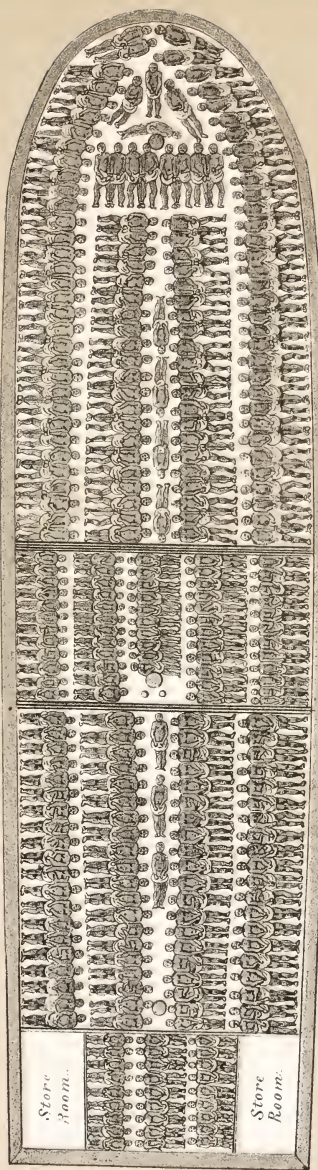 Store
Room.
Store
Room.